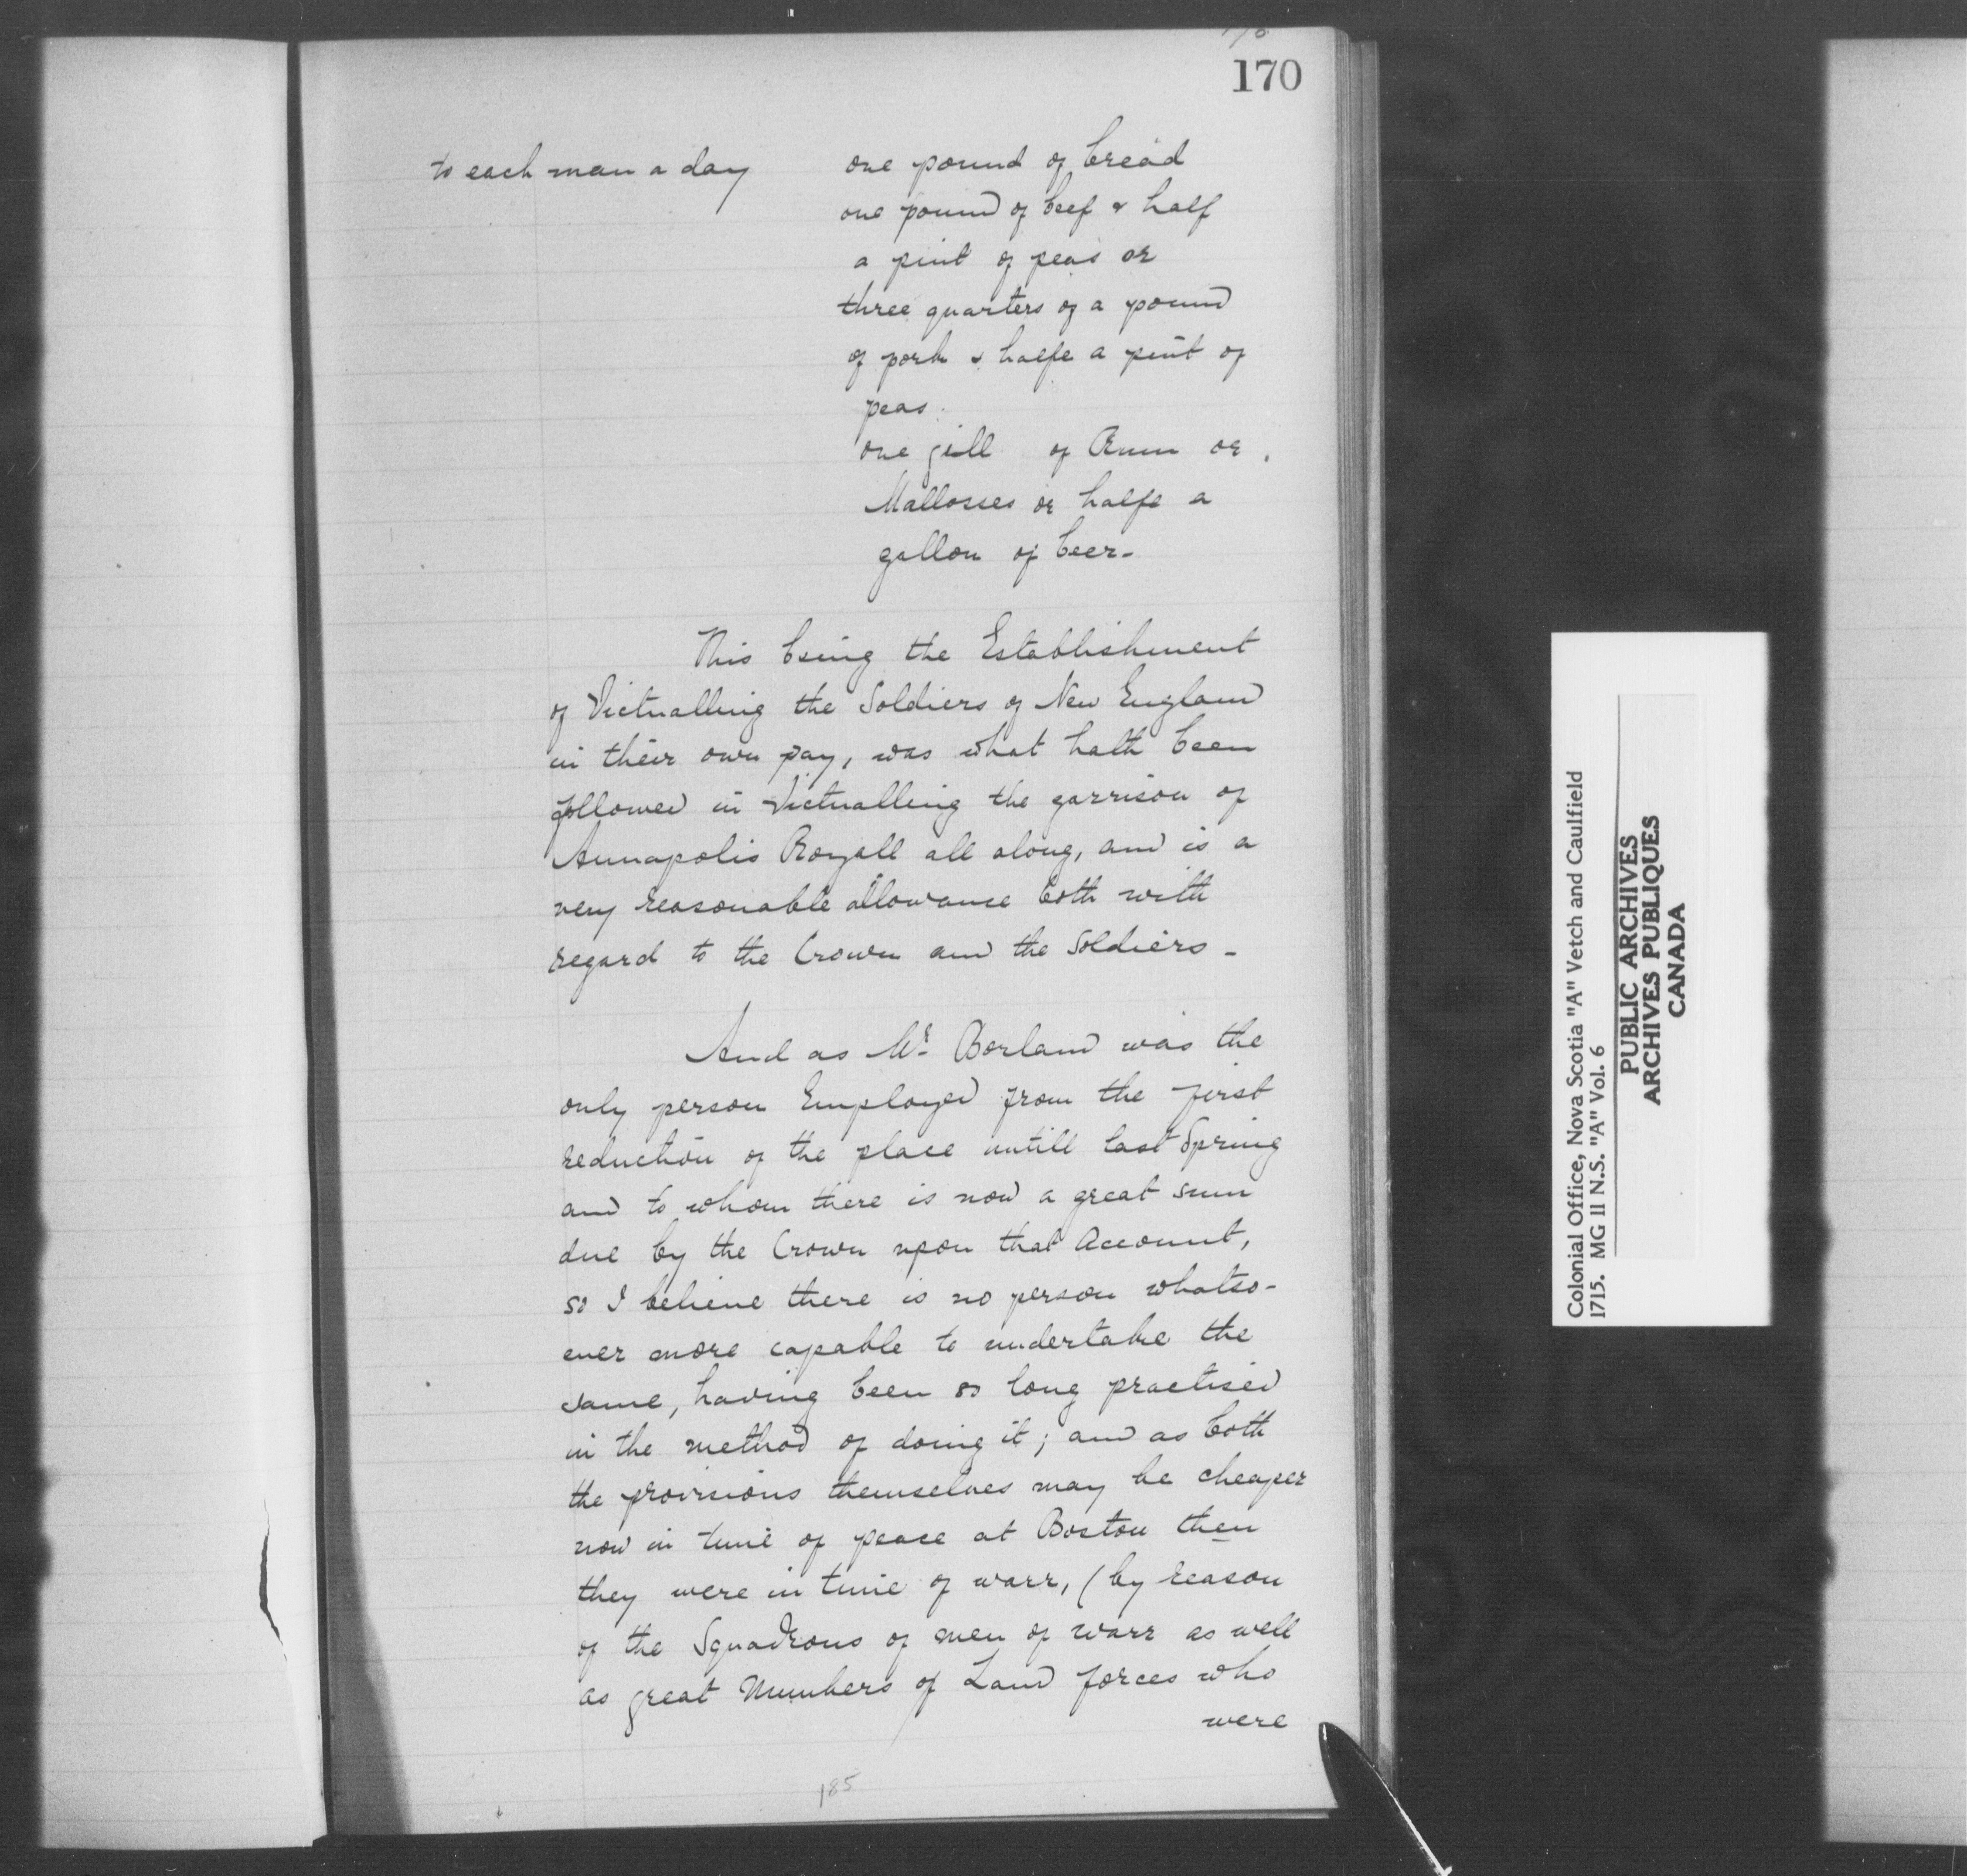 170
to each man a day
one pound of bread
one pound of beef & half
a pint of peas or
three quarters of a pound
of pork & halfe a pint of
peas.
one gill of Rum or
Mallosses or halfe a
gallon of beer-
This being the Establishment
of Victualling the Soldiers of New England
in their own pay, was what hath been
followed in Victualling the garrison of
Annapolis Royall all along, and is a
very reasonable allowance both with
regard to the Crown and the Soldiers -
And as Mr. Borland was the
only person Employed from the first
reduction of the place untill last Spring
and to whom there is now a great sum
due by the Crown upon that Account,
so I believe there is no person whatso-
ever more capable to undertake the
same, having been so long practised
in the method of doing it; and as both
the provisions themselves may be cheaper
now in time of peace at Boston then
they were in time of warr, (by reason
of the Squadrons of men of warr as well
as great Numbers of Land forces who
were
185
Colonial Office, Nova Scotia "A" Vetch and Caulfield
1715. MG 11 N.S. "A" Vol. 6
PUBLIC ARCHIVES
ARCHIVES PUBLIQUES
CANADA